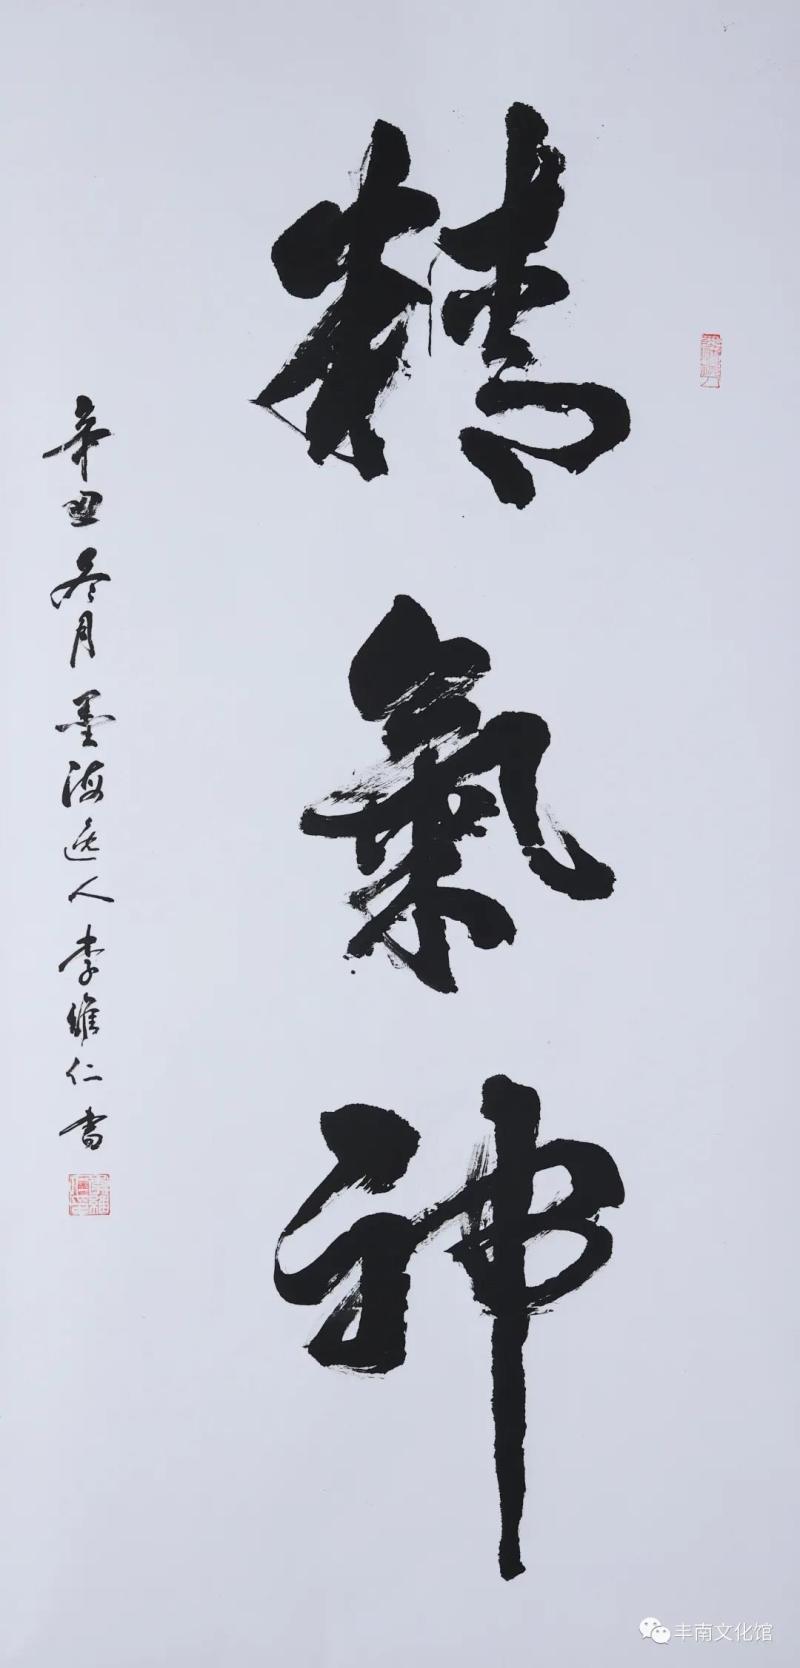 精氣神
辛丑冬月墨海逸人李維仁書
丰南文化馆